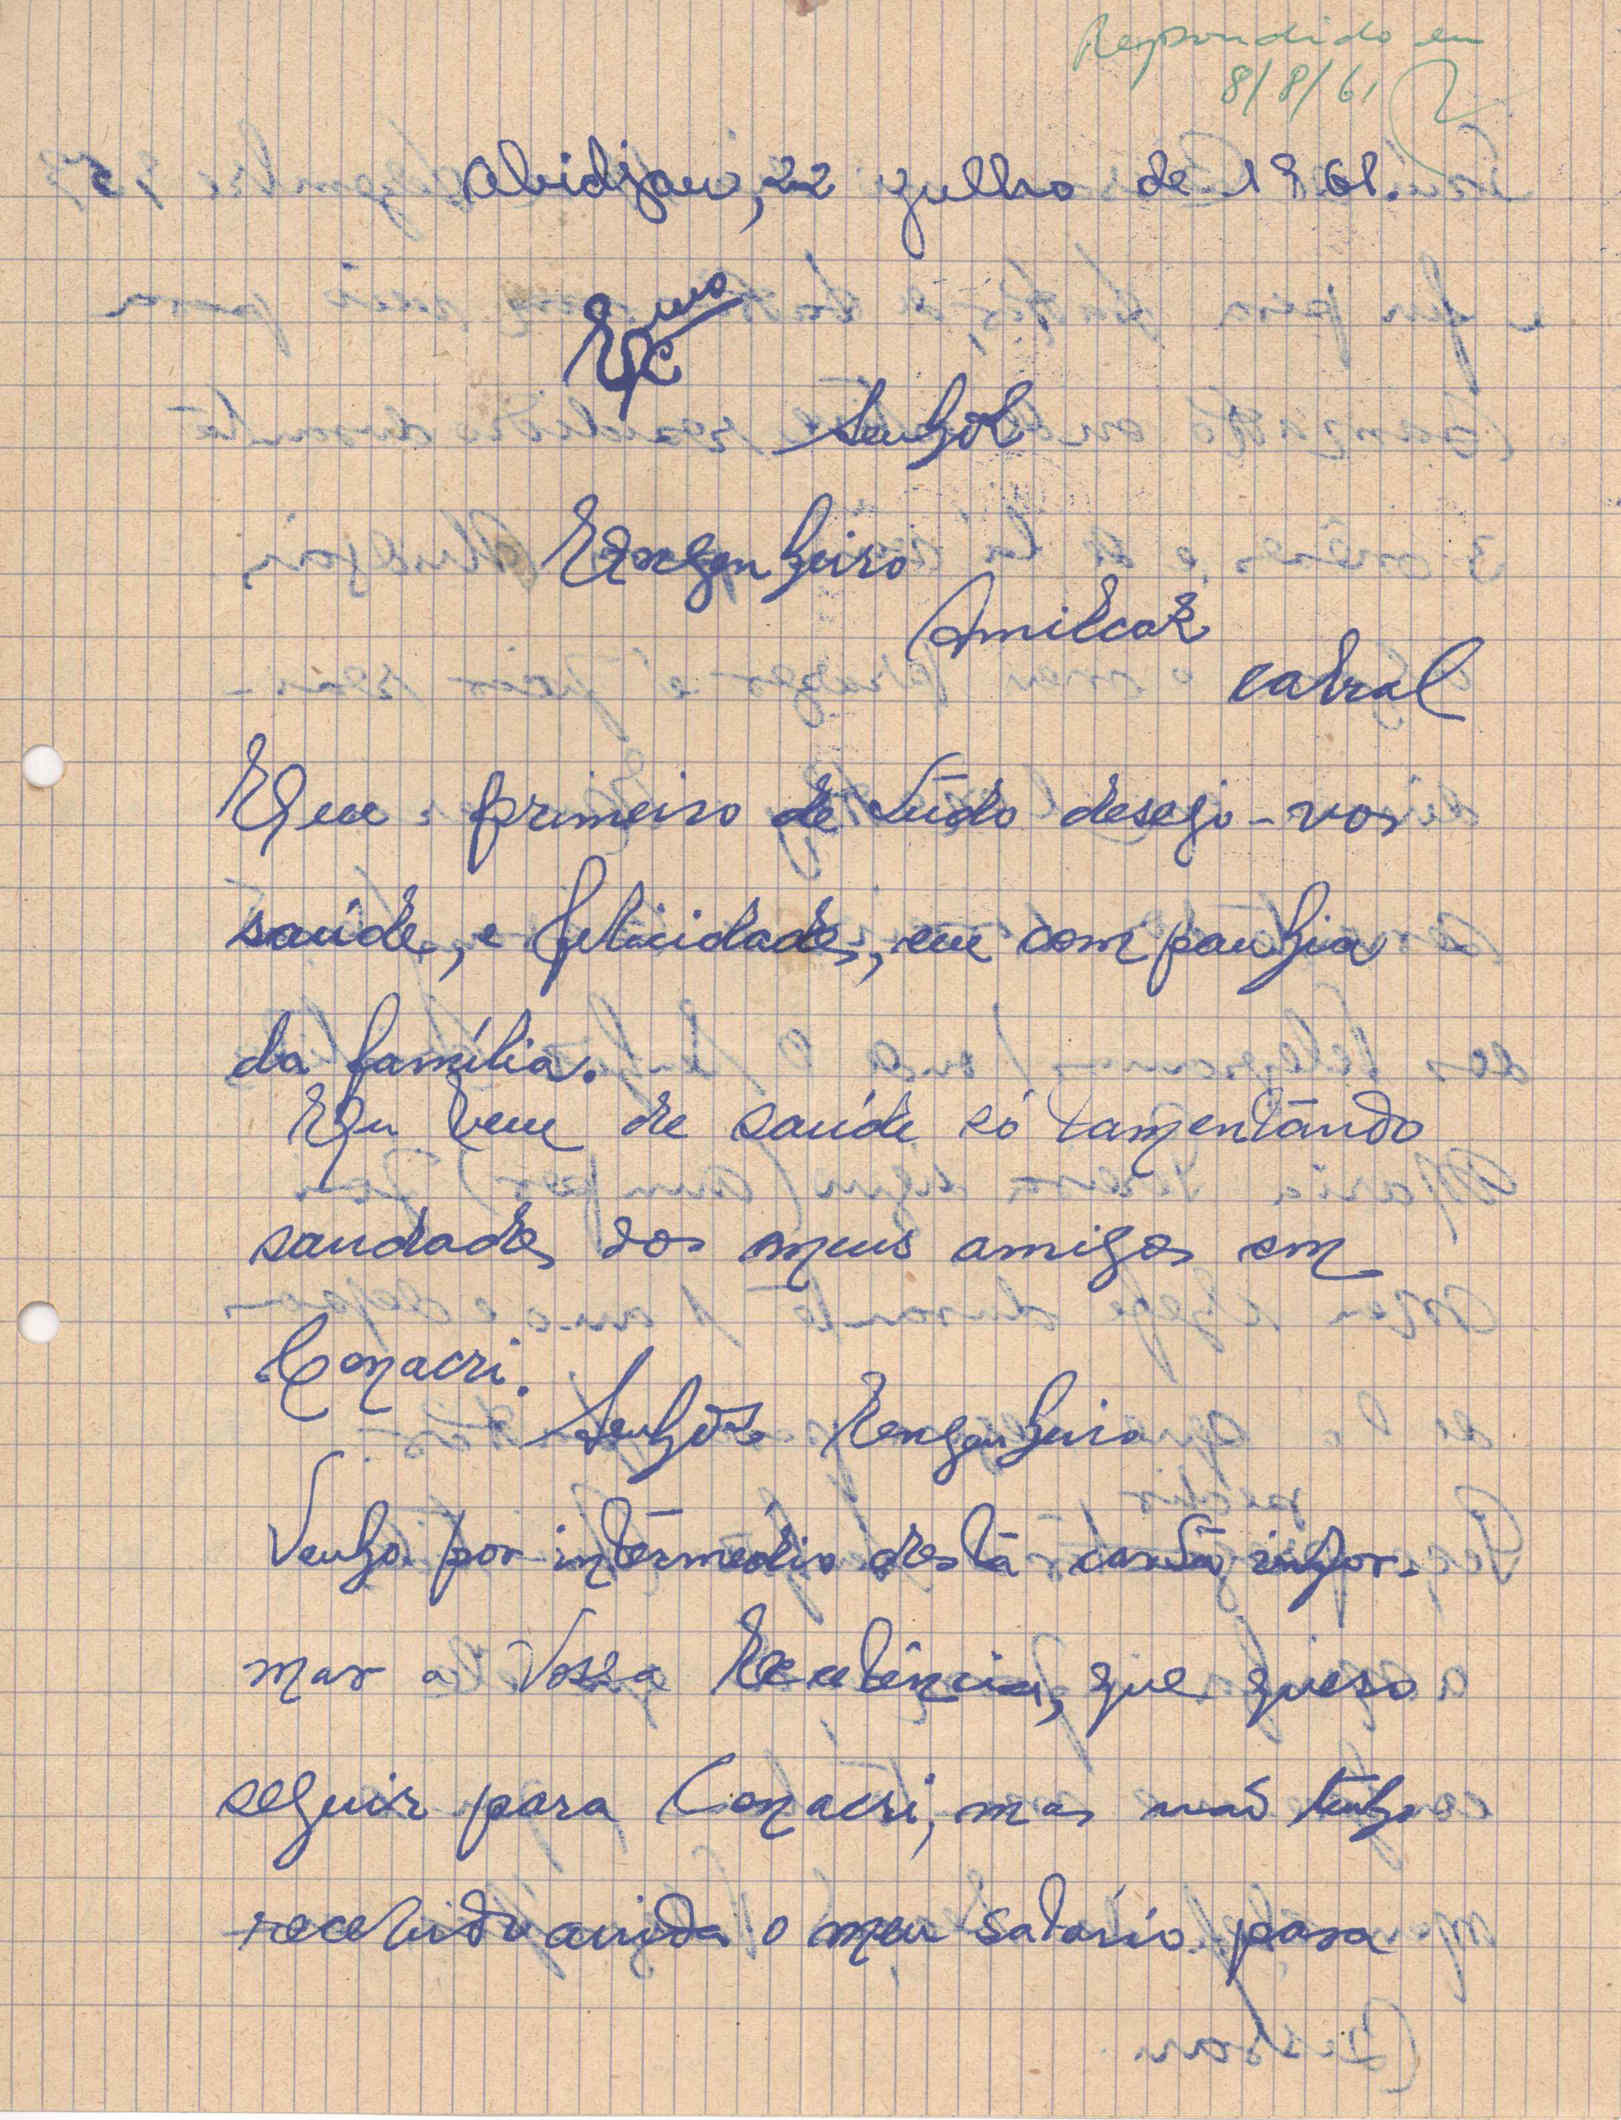 Respondido em
8/8/61
Abidjan, 22 julho de 1961.
Exmo
Senhor
Engenheiro
Amilcar
Cabral
Em primeiro de tudo desejo-vos
saúde, e felicidades, em companhia
da família.
Eu bem de saúde só lamentando
saudades dos meus amigos em
Conacri.
Senhor Engenheiro
Venho por intérmédio destá carta infor-
mar a Vossa Excelência, que quero
seguir para Conacri, mas não tenho
recebido ainda o meu salário para